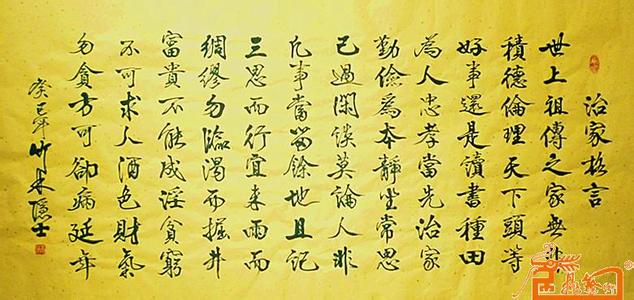 治家格言
世上祖傳之家無非
積德倫理天下頭等
好事還是讀書種田
為人忠孝當先治家
勤儉為本靜坐常思
己過閑談莫論人非
凡事當留餘地且記
三思而行宜未雨而
綢繆勿臨渴而掘井
富貴不能成淫貧窮
不可求人酒色財氣
勿貪方可卻病延年
癸巳年竹林隱士